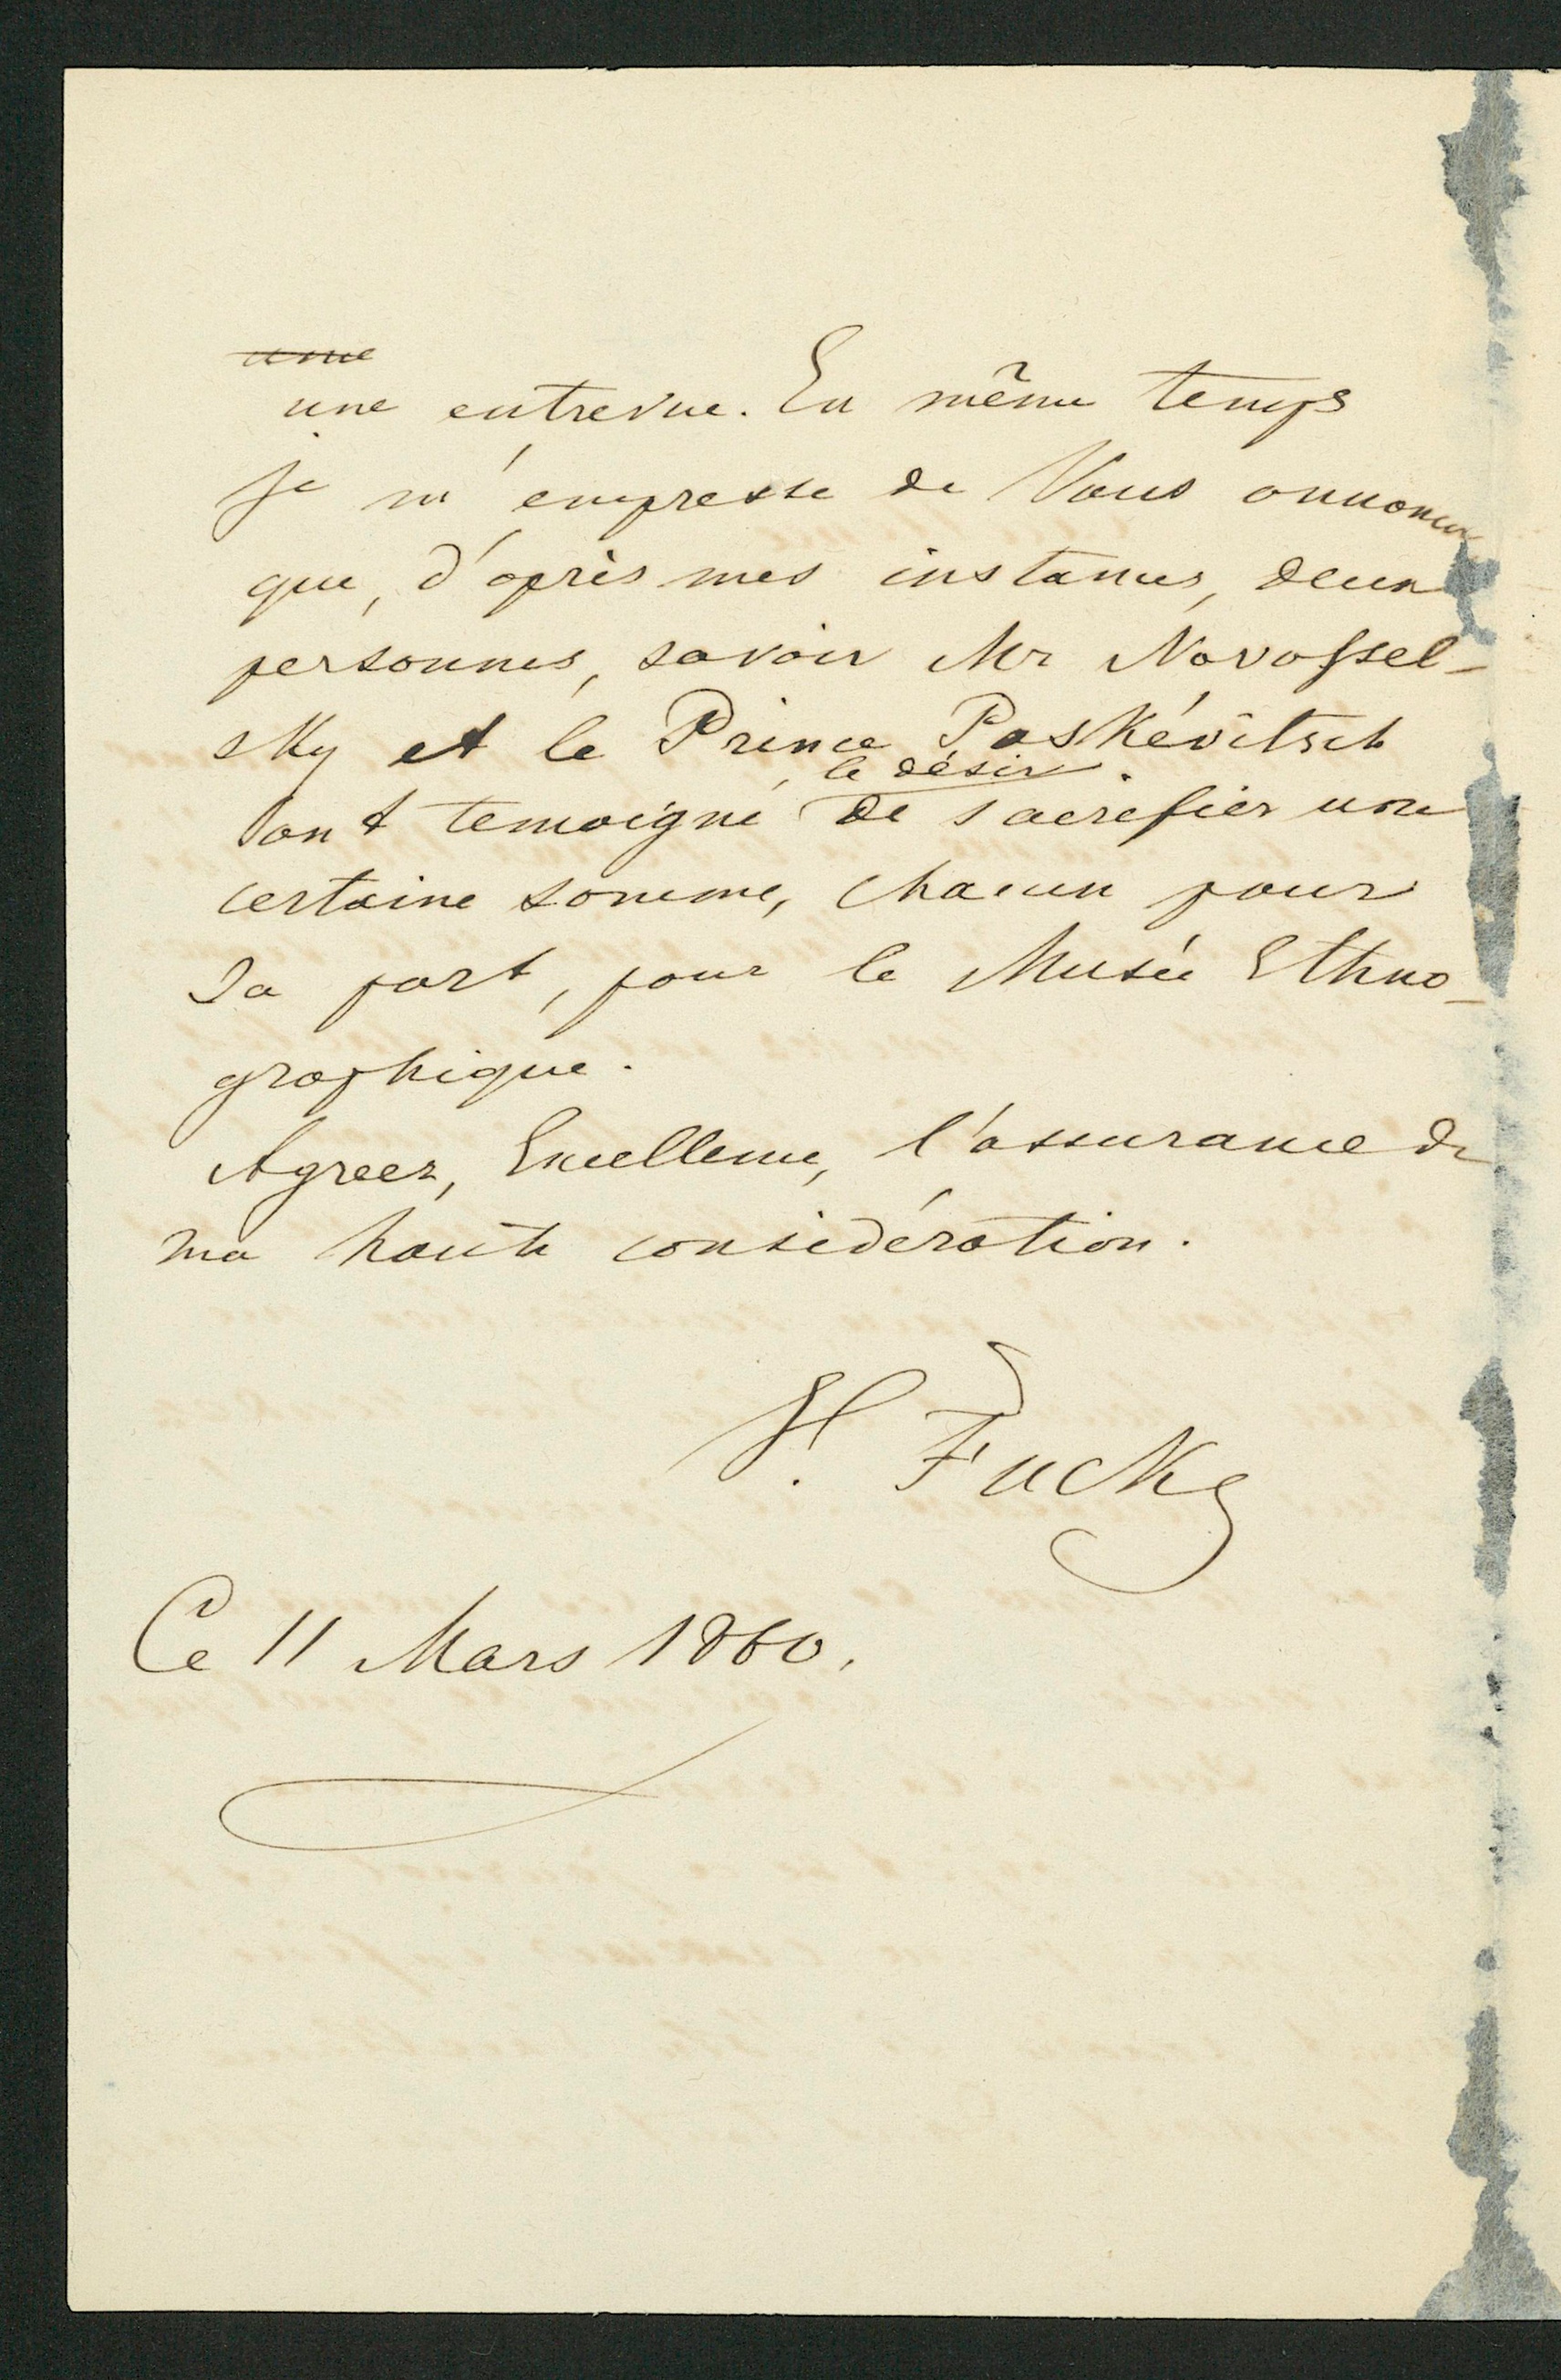 une
une entrevue. En même temps
je m'empresse de Vous annoncer
que, d'après mes instances, deux
personnes, savoir Mr Novossel-
sky et le Prince Paskévitsch
le désir
ont temoigné de sacrefier une
certaine somme, chacun pour
sa part, pour le Musée Ethno-
graphique.
Agreez, Excellence, l'assurance de
ma haute considération.
Fucks
Ce 11 Mars 1860.